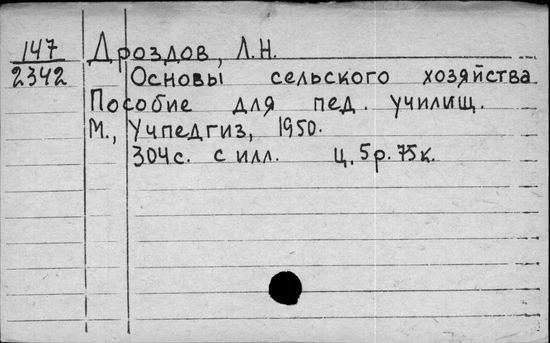 147
2342
Дроздов, Л.Н.
Основы сельского хозяйства
Пособие для пед. училищ.
М., Учпедгиз, 1950.
304с. с илл. Ц. 5р. 75к.